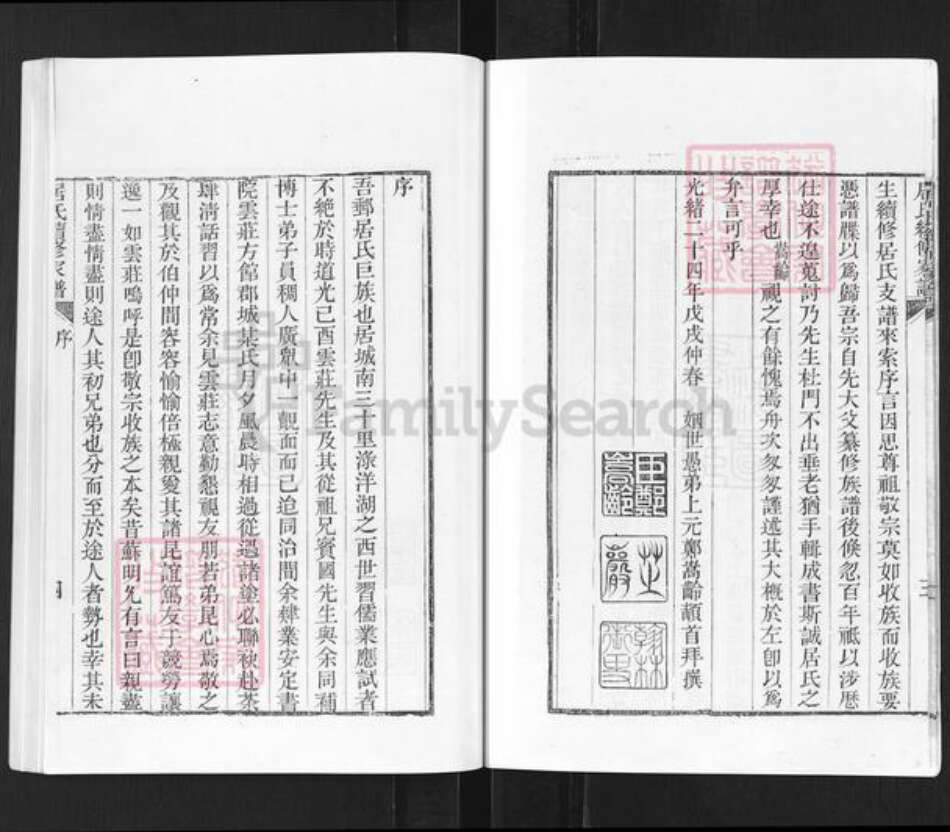 居氏續修家譜
三
生續修居氏支譜來索序言因思尊祖敬宗莫如收族而收族要
憑譜牒以爲歸吾宗自先大父纂修族譜後倏忽百年祗以涉歷
仕途不遑蒐討乃先生杜門不出垂老猶手輯成書斯誠居氏之
厚幸也嵩齡視之有餘愧焉舟次匆匆謹述其大概於左卽以爲
弁言可乎
光緒二十四年戊戌仲春 姻世愚弟上元鄭嵩齡頓首拜撰
臣鄭嵩齡
芝巖
翰林
序
吾郵居氏巨族也居城南三十里淥洋湖之西世習儒業應試者
不絕於時道光己酉雲莊先生及其從祖兄賓國先生與余同補
博士弟子員稠人廣眾中一覿面而已迨同治間余肄業安定書
院雲莊方館郡城某氏月夕風晨時相過從遇諸塗必聯袂赴茶
肆淸話習以爲常余見雲莊志意勤懇視友朋若弟昆心焉敬之
及觀其於伯仲間容容愉愉倍極親愛其諸昆誼篤友于競勞讓
逸一如雲莊嗚呼是卽敬宗收族之本矣昔蘇明允有言曰親盡
則情盡情盡則途人其初兄弟也分而至於途人者勢也幸其未
居氏續修家譜
序
四
FamilySearch